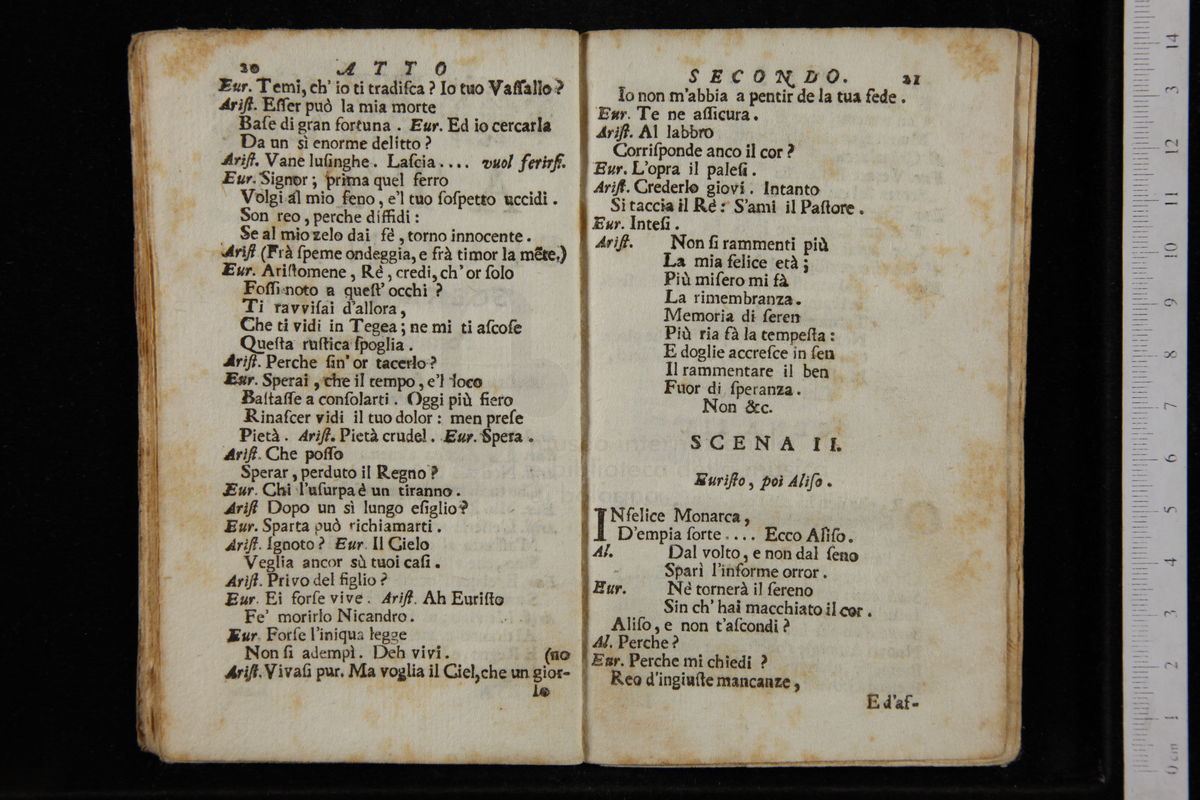 20 ATTO
Eur. Temi, ch' io ti tradiſca? Io tuo Vaſſallo?
Ariſt. Eſſer può la mia morte
Baſe di gran fortuna. Eur. Ed io cercarla
Da un sì enorme delitto?
Ariſt. Vane luſinghe. Laſcia.... vuol ferirſi.
Eur. Signor; prima quel ferro
Volgi al mio ſeno, e'l tuo ſoſpetto uccidi.
Son reo, perche diffidi:
Se al mio zelo dai fè, torno innocente.
Ariſt (Frà ſpeme ondeggia, e frà timor la mẽte,)
Eur. Ariſtomene, Rè, credi, ch' or ſolo
Foſſi noto a queſt' occhi?
Ti ravviſai d'allora,
Che ti vidi in Tegea; ne mi ti aſcoſe
Queſta ruſtica ſpoglia.
Ariſt. Perche ſin' or tacerlo?
Eur. Sperai, che il tempo, e'l loco
Baſtaſſe a conſolarti. Oggi più fiero
Rinaſcer vidi il tuo dolor: men preſe
Pietà. Ariſt. Pietà crudel. Eur. Spera.
Ariſt. Che poſſo
Sperar, perduto il Regno?
Eur. Chi l'uſurpa è un tiranno.
Ariſt Dopo un sì lungo eſiglio?
Eur. Sparta può richiamarti.
Ariſt. Ignoto? Eur. Il Cielo
Veglia ancor sù tuoi caſi.
Ariſt. Privo del figlio?
Eur. Ei forſe vive. Ariſt. Ah Euriſto
Fe' morirlo Nicandro.
Eur. Forſe l'iniqua legge
Non ſi adempì. Deh vivi. (no
Ariſt. Vivaſi pur. Ma voglia il Ciel, che un gior-
lo
SECONDO. 21
Io non m'abbia a pentir de la tua fede.
Eur. Te ne aſſicura.
Ariſt. Al labbro
Corriſponde anco il cor?
Eur. L'opra il paleſi.
Ariſt. Crederlo giovi. Intanto
Si taccia il Rè: S'ami il Paſtore.
Eur. Inteſi.
Ariſt. Non ſi rammenti più
La mia felice età;
Più miſero mi fà
La rimembranza.
Memoria di ſeren
Più ria fà la tempeſta:
E doglie accreſce in ſen
Il rammentare il ben
Fuor di ſperanza.
Non &c.
SCENA II.
Euriſto, poi Aliſo.
INfelice Monarca,
D'empia ſorte.... Ecco Aliſo.
Al. Dal volto, e non dal ſeno
Sparì l'informe orror.
Eur. Nè tornerà il ſereno
Sin ch' hai macchiato il cor.
Aliſo, e non t'aſcondi?
Al. Perche?
Eur. Perche mi chiedi?
Reo d'ingiuſte mancanze,
E d'aſ-